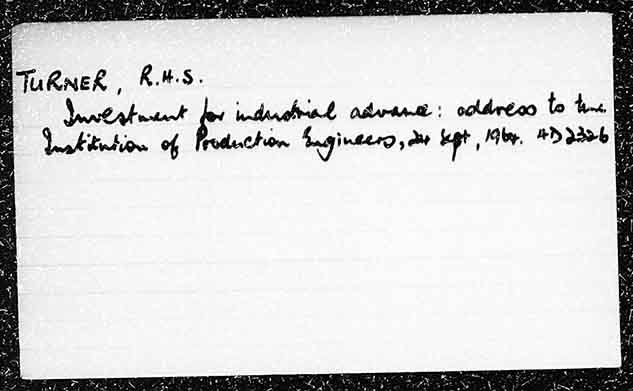 TURNER, R.H.S.
Investment for industrial advance: address to the
Institution of Production Engineers, 24 Sept, 1964. HD2326